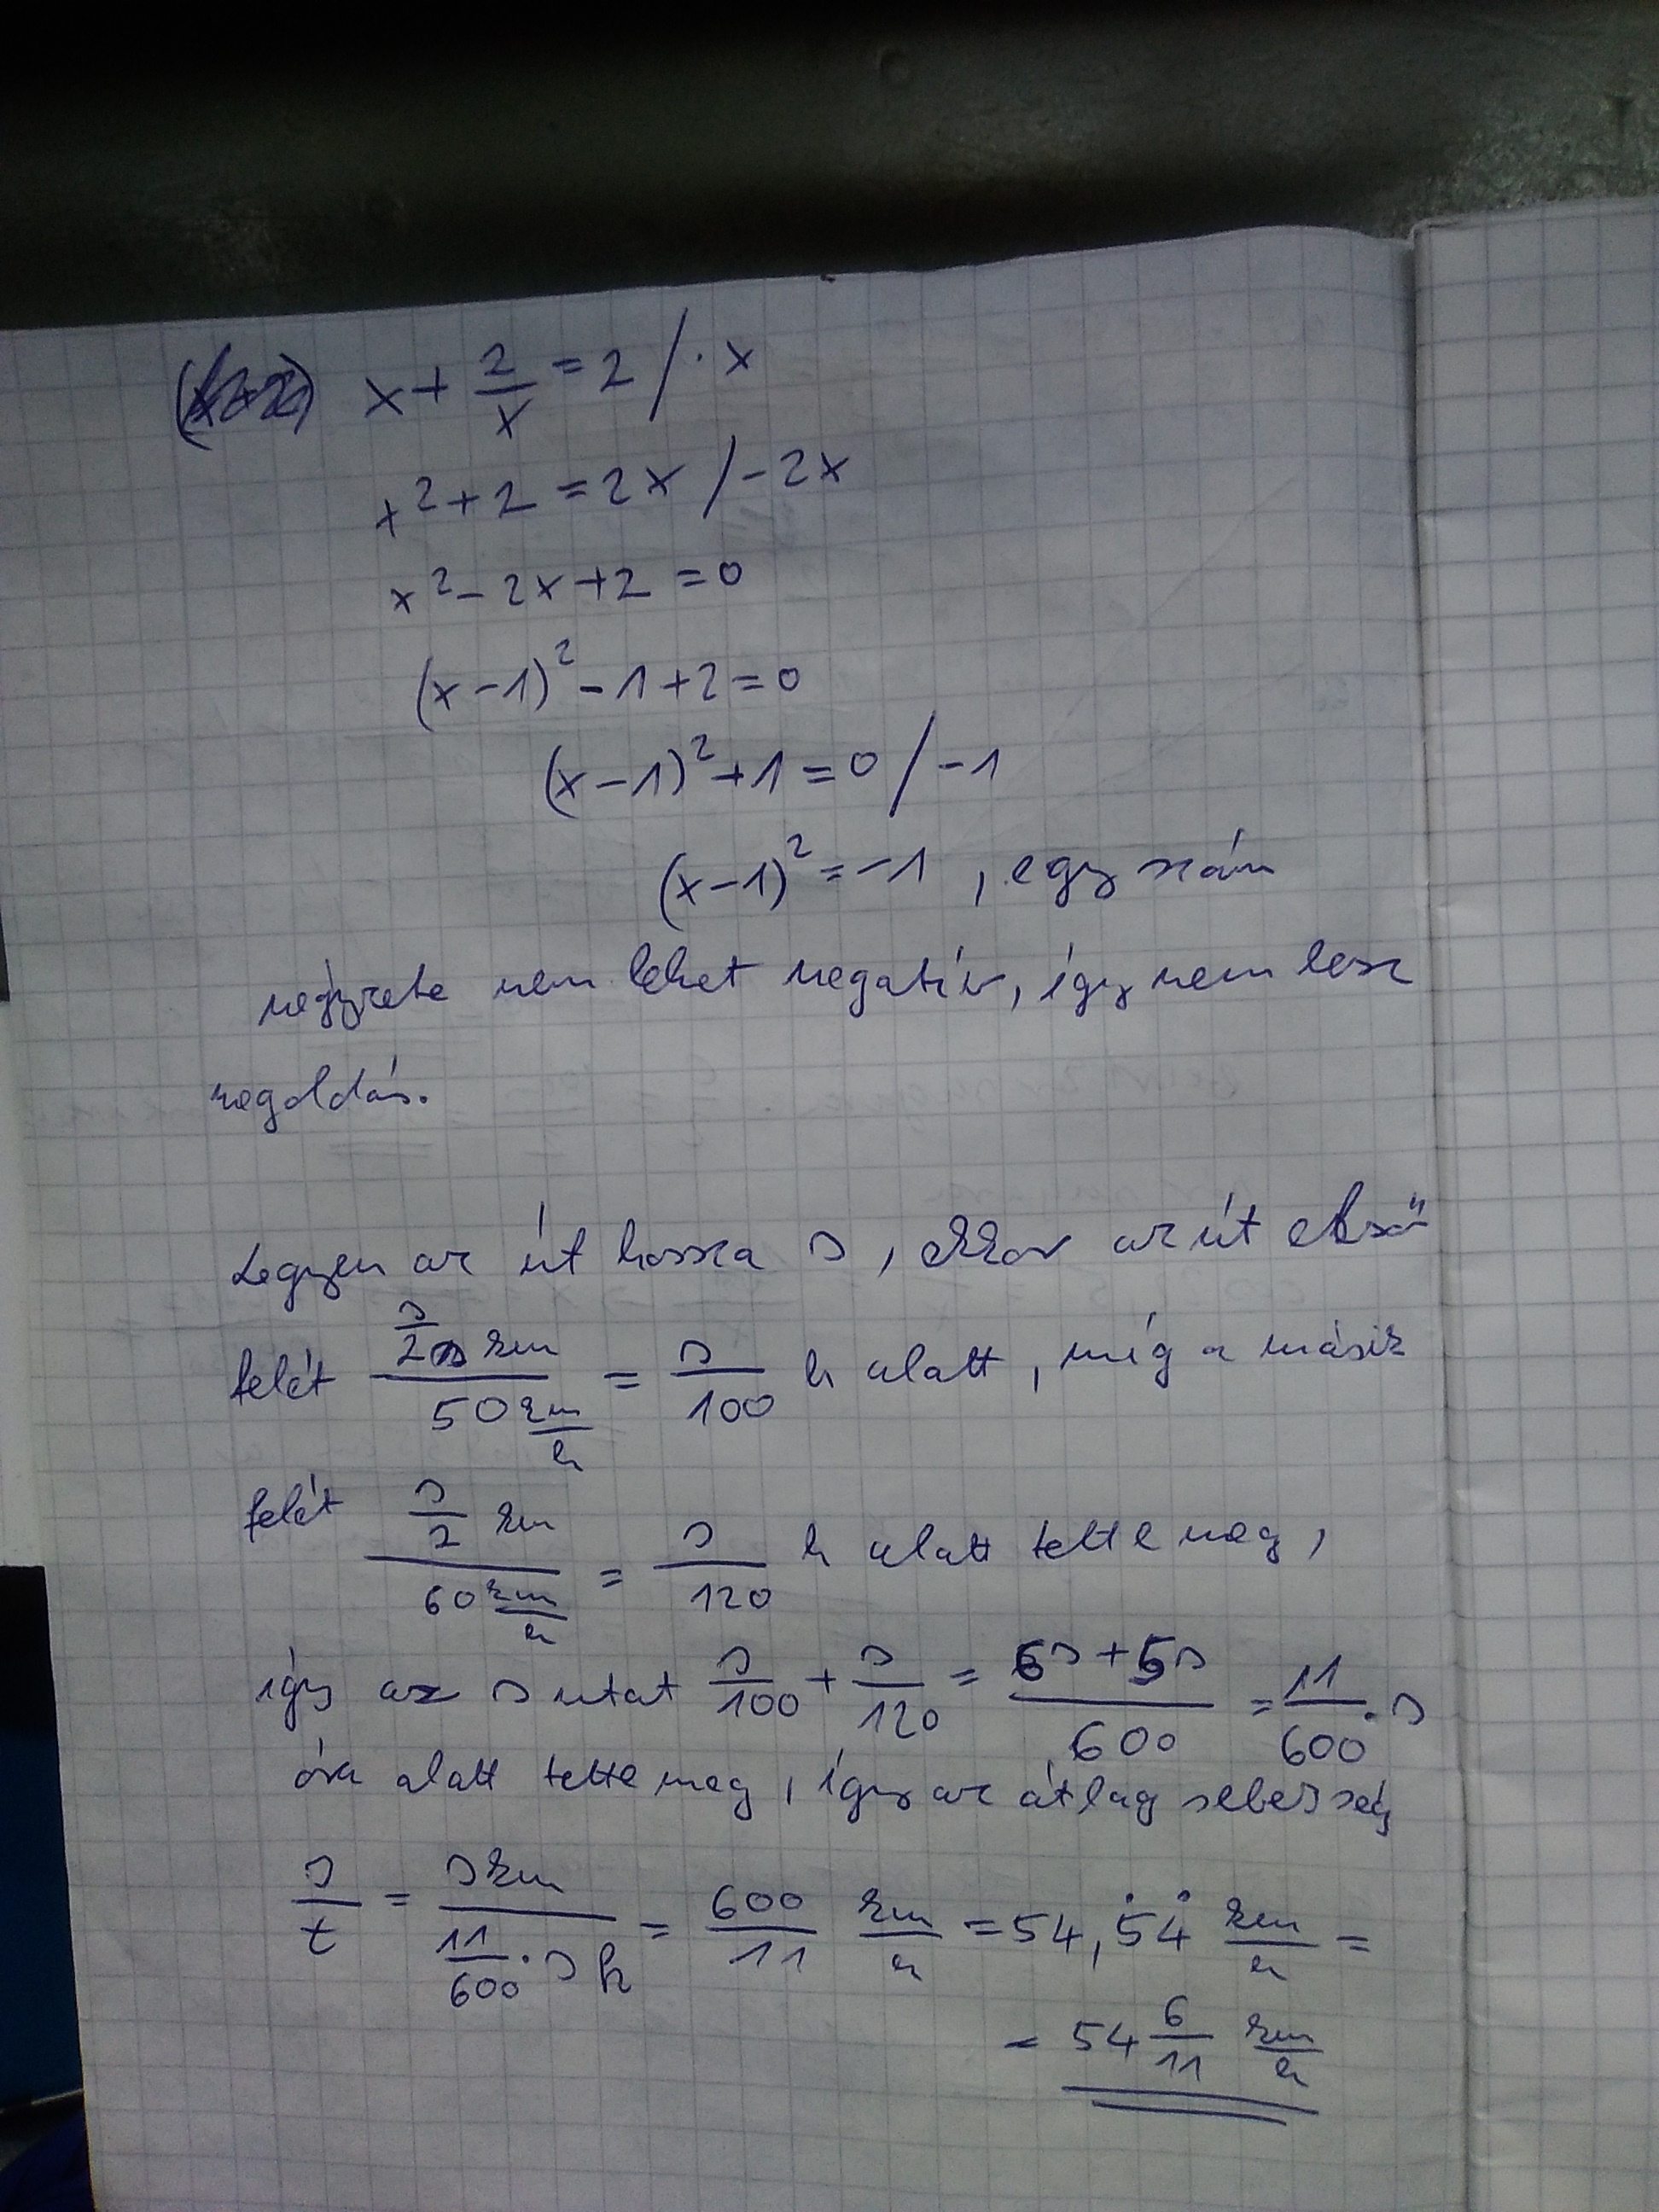 x + 2/x = 2 / · x
x² + 2 = 2x / -2x
x² - 2x + 2 = 0
(x-1)² - 1 + 2 = 0
(x-1)² + 1 = 0 / -1
(x-1)² = -1 , egy szám
négyzete nem lehet negatív, így nem lesz
megoldás.
Legyen az út hossza s, ekkor az út első
felét (s/2 km)/(50 km/h) = s/100 h alatt, míg a másik
felét (s/2 km)/(60 km/h) = s/120 h alatt tette meg,
így az s utat s/100 + s/120 = (6s+5s)/600 = 11/600 · s
óra alatt tette meg, így az átlag sebesség
s/t = (s km)/(11/600 · s h) = 600/11 km/h = 54,5̇4̇ km/h =
= 54 6/11 km/h